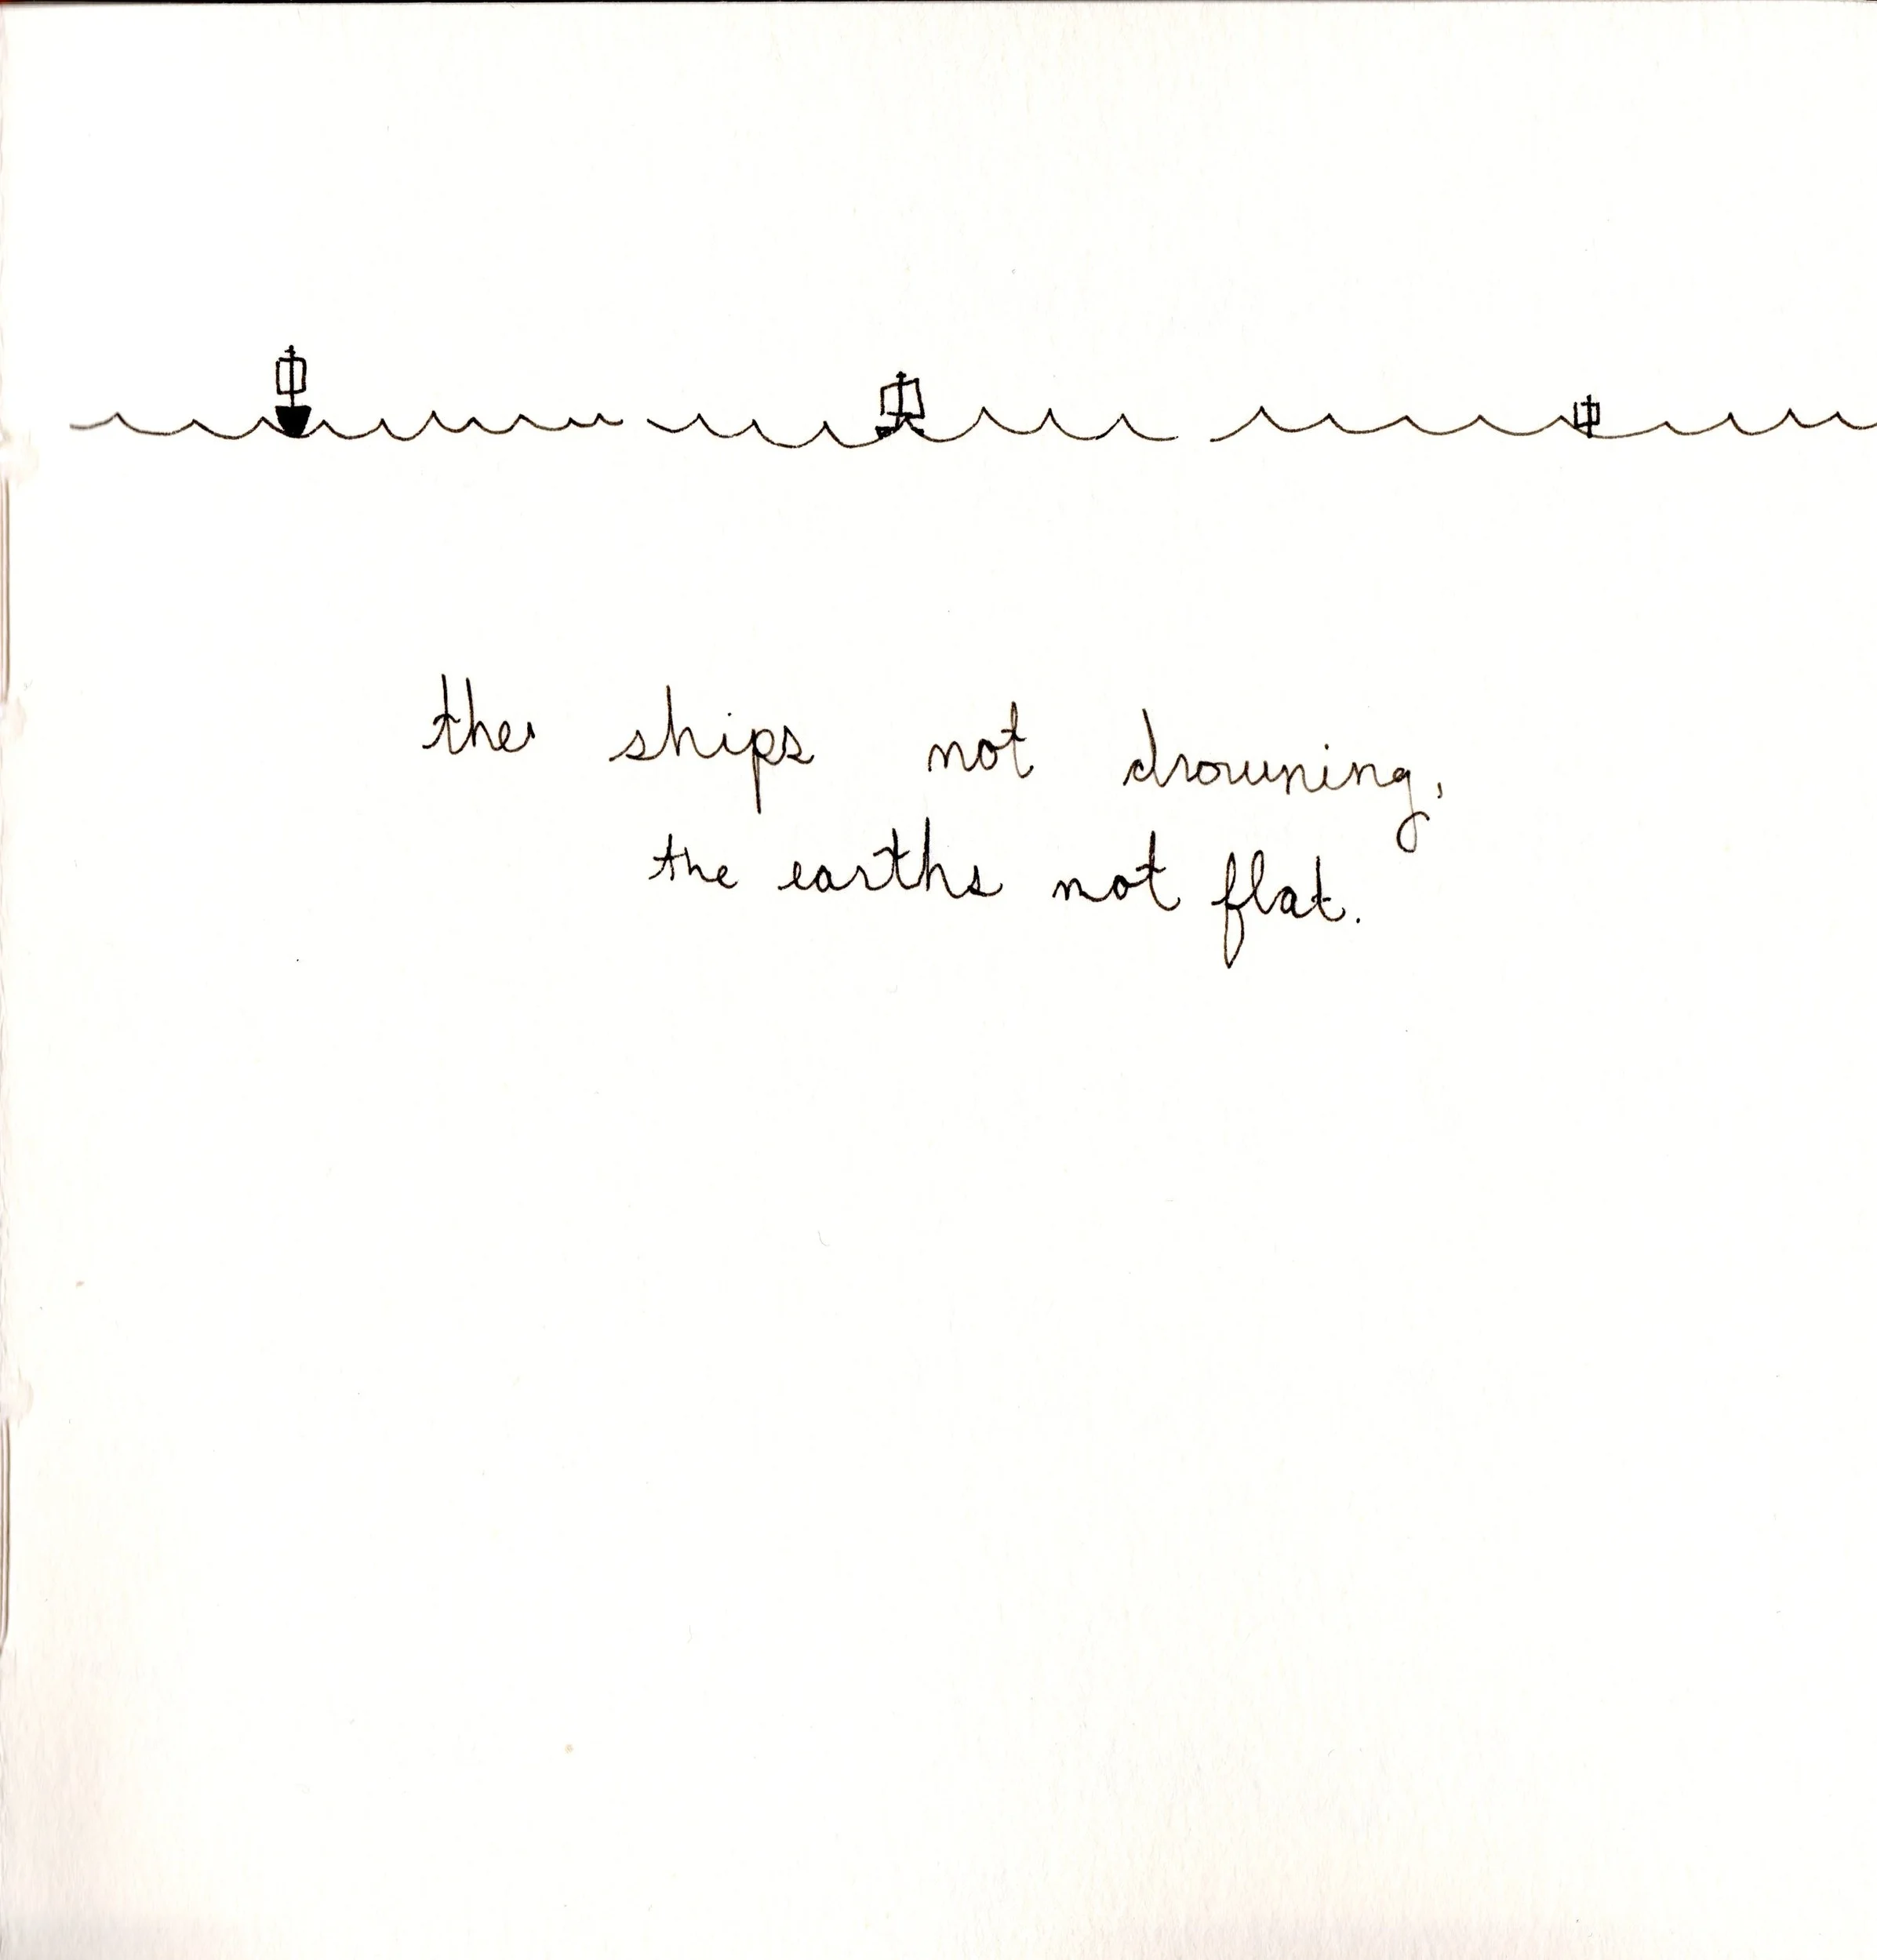 the ships not drowning,
the earths not flat.